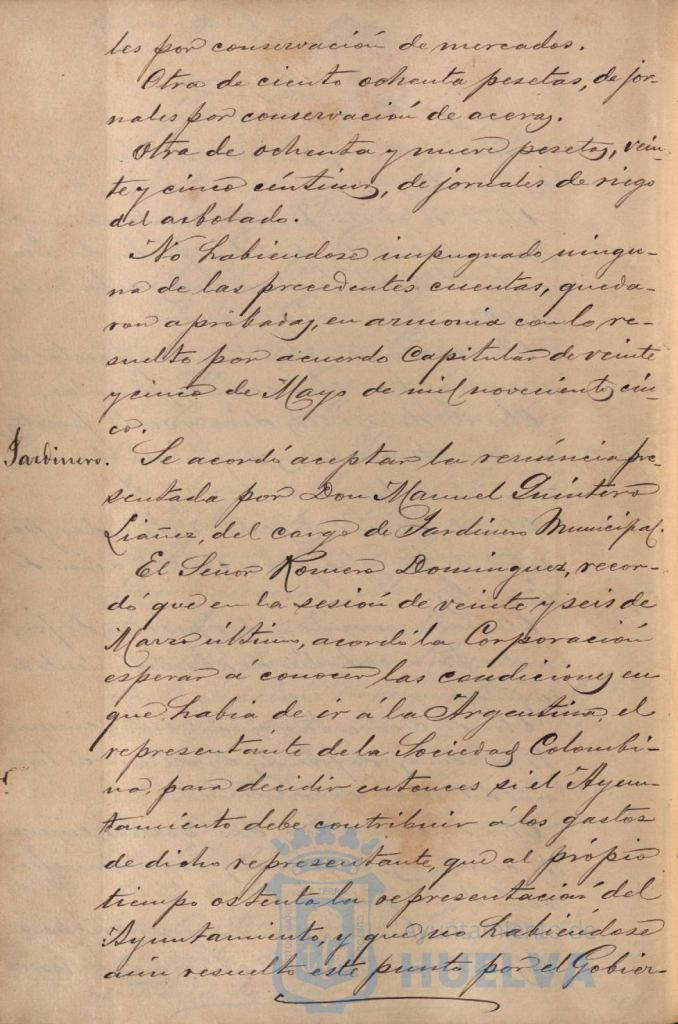 les por conservación de mercados.
Otra de ciento ochenta pesetas, de jor-
nales por conservación de aceras.
Otra de ochenta y nueve pesetas, vein-
te y cinco céntimos, de jornales de riego
del arbolado.
No habiendose impugnado ningu-
na de las precedentes cuentas, queda-
ron aprobadas, en armonia con lo re-
suelto por acuerdo Capitular de veinte
y cinco de Mayo de mil novecientos cin-
co.
Jardinero. Se acordó aceptar la renúncia pre-
sentada por Don Manuel Quintero
Liáñez, del cargo de Jardinero Municipal.
El Señor Romero Dominguez, recor-
dó que en la sesión de veinte y seis de
Marzo último, acordó la Corporación
esperar á conocer las condiciones en
que habia de ir á la Argentina, el
representante de la Sociedad Colombi-
na, para decidir entonces si el Ayun-
tamiento debe contribuir á los gastos
de dicho representante, que al própio
tiempo ostenta la representación del
Ayuntamiento, y que no habiéndose
aún resuelto este punto por el Gobier-
Ayuntamiento de
HUELVA